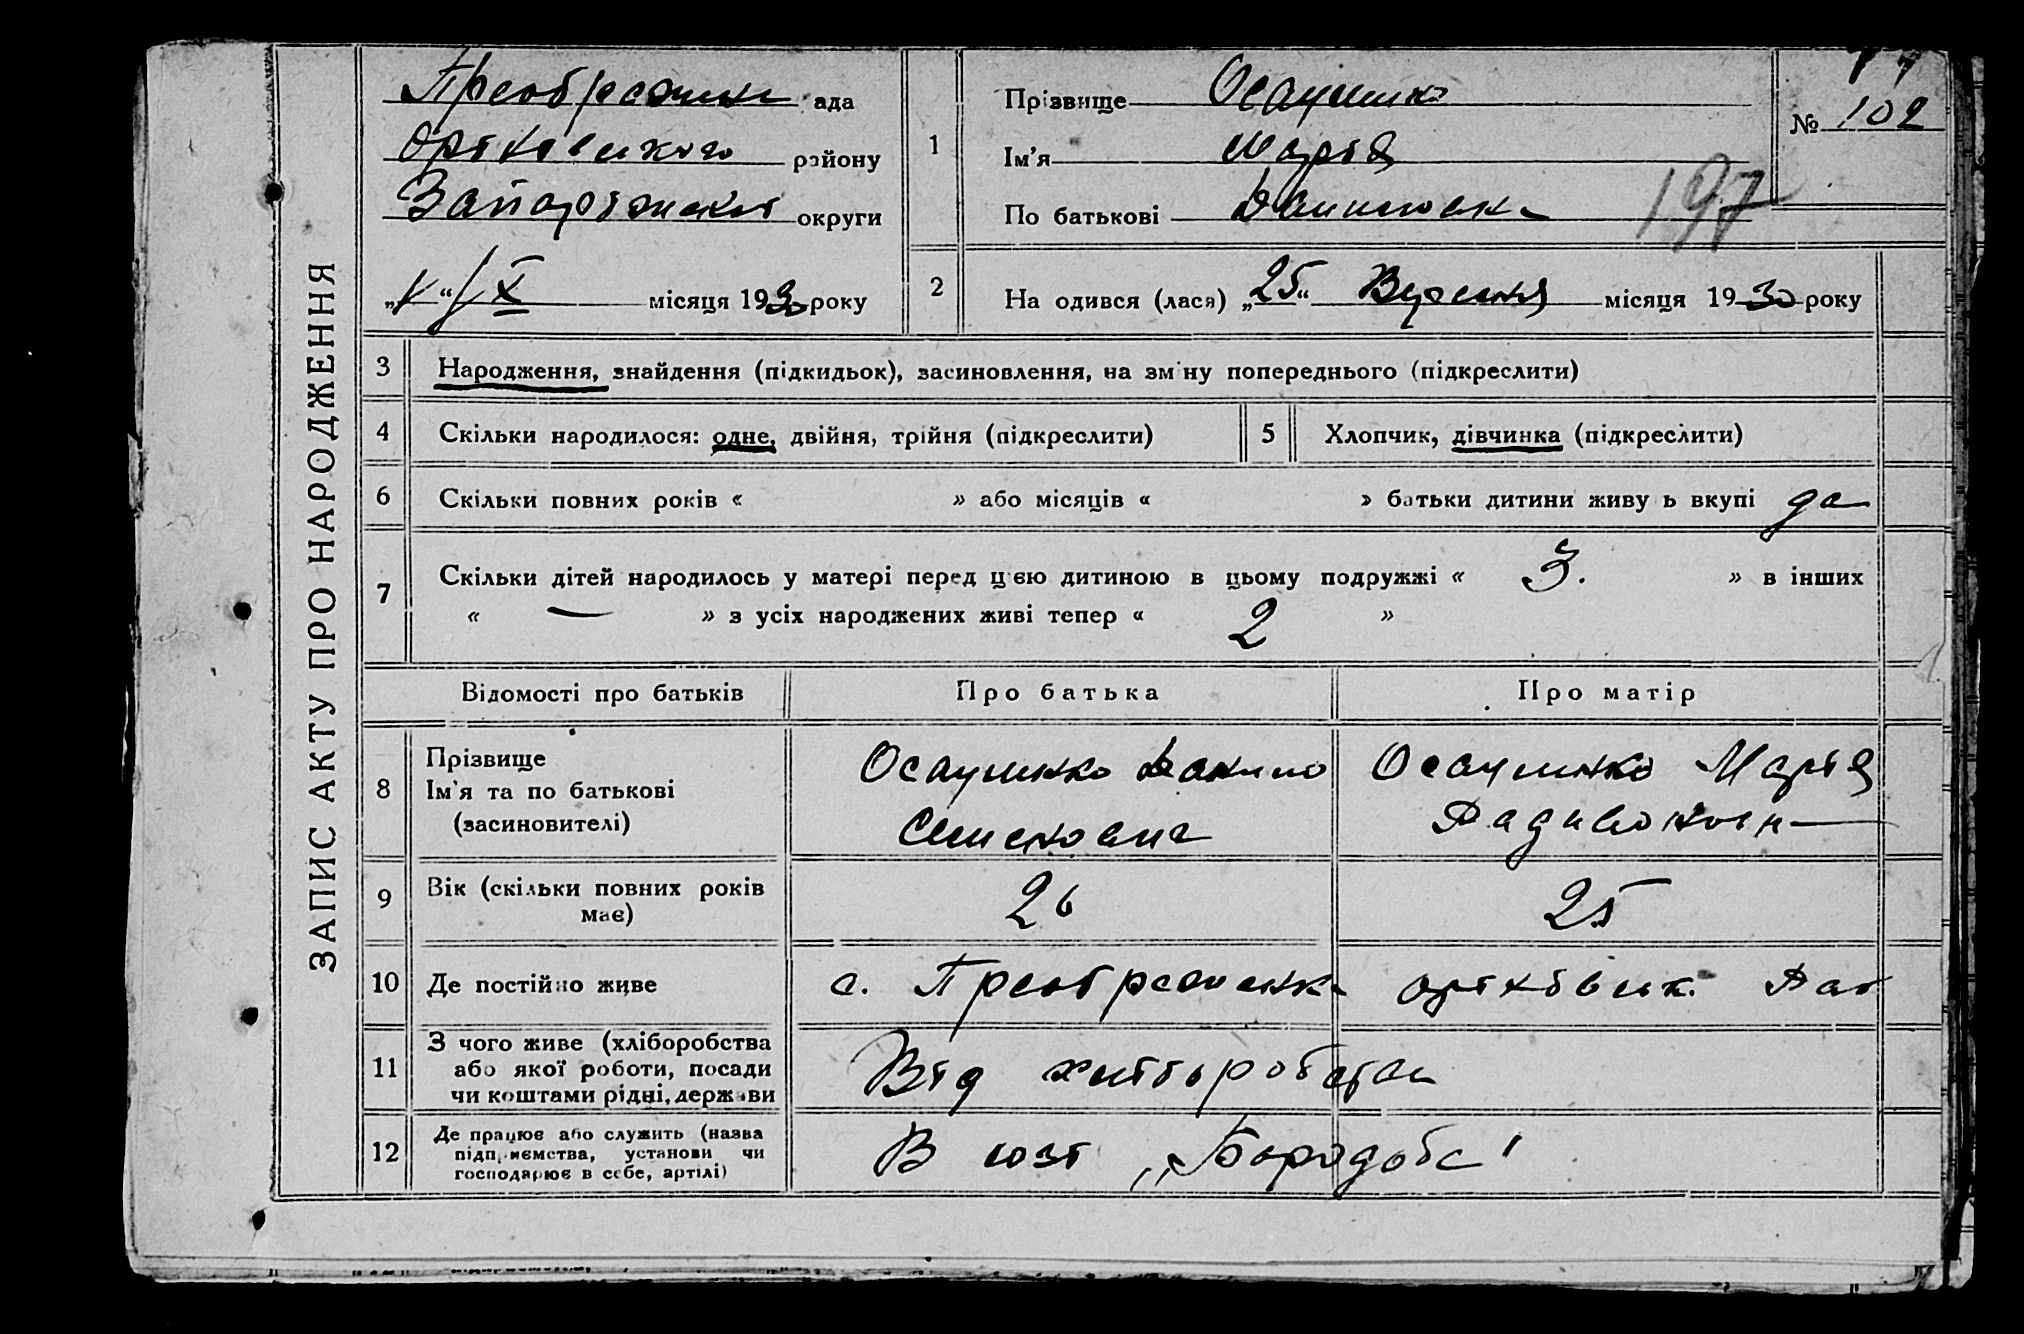 ЗАПИС АКТУ ПРО НАРОДЖЕННЯ
Преображенс ада
Оріхівського району
Запоріжської округи
„ “ / X місяця 1930 року
1
Прізвище Осаулинко
Ім'я Марія
По батькові Даниловна
№ 102
197
2
На одився (лася) „25“ Вересня місяця 1930 року
3 Народження, знайдення (підкидьок), засиновлення, на зм ну попереднього (підкреслити)
4 Скільки народилося: одне, двійня, трійня (підкреслити)
5 Хлопчик, дівчинка (підкреслити)
6 Скільки повних років « » або місяців « » батьки дитини живу ь вкупі да
7 Скільки дітей народилось у матері перед цією дитиною в цьому подружжі « 3. » в інших
« — » з усіх народжених живі тепер « 2 »
Відомості про батьків Про батька Про матір
8 Прізвище
Ім'я та по батькові
(засиновителі)
Осаулинко Данило
Осаулинко Марія
Радивоновн
9 Вік (скільки повних років
має)
26 25
10 Де постійно живе с. Преображенка Оріхівськ. Рай
11 З чого живе (хліборобства
або якої роботи, посади
чи коштами рідні, держави
Від хліборобства
12 Де працює або служить (назва
підприємства, установи чи
господарює в себе, артілі)
В созі „Бородьба"